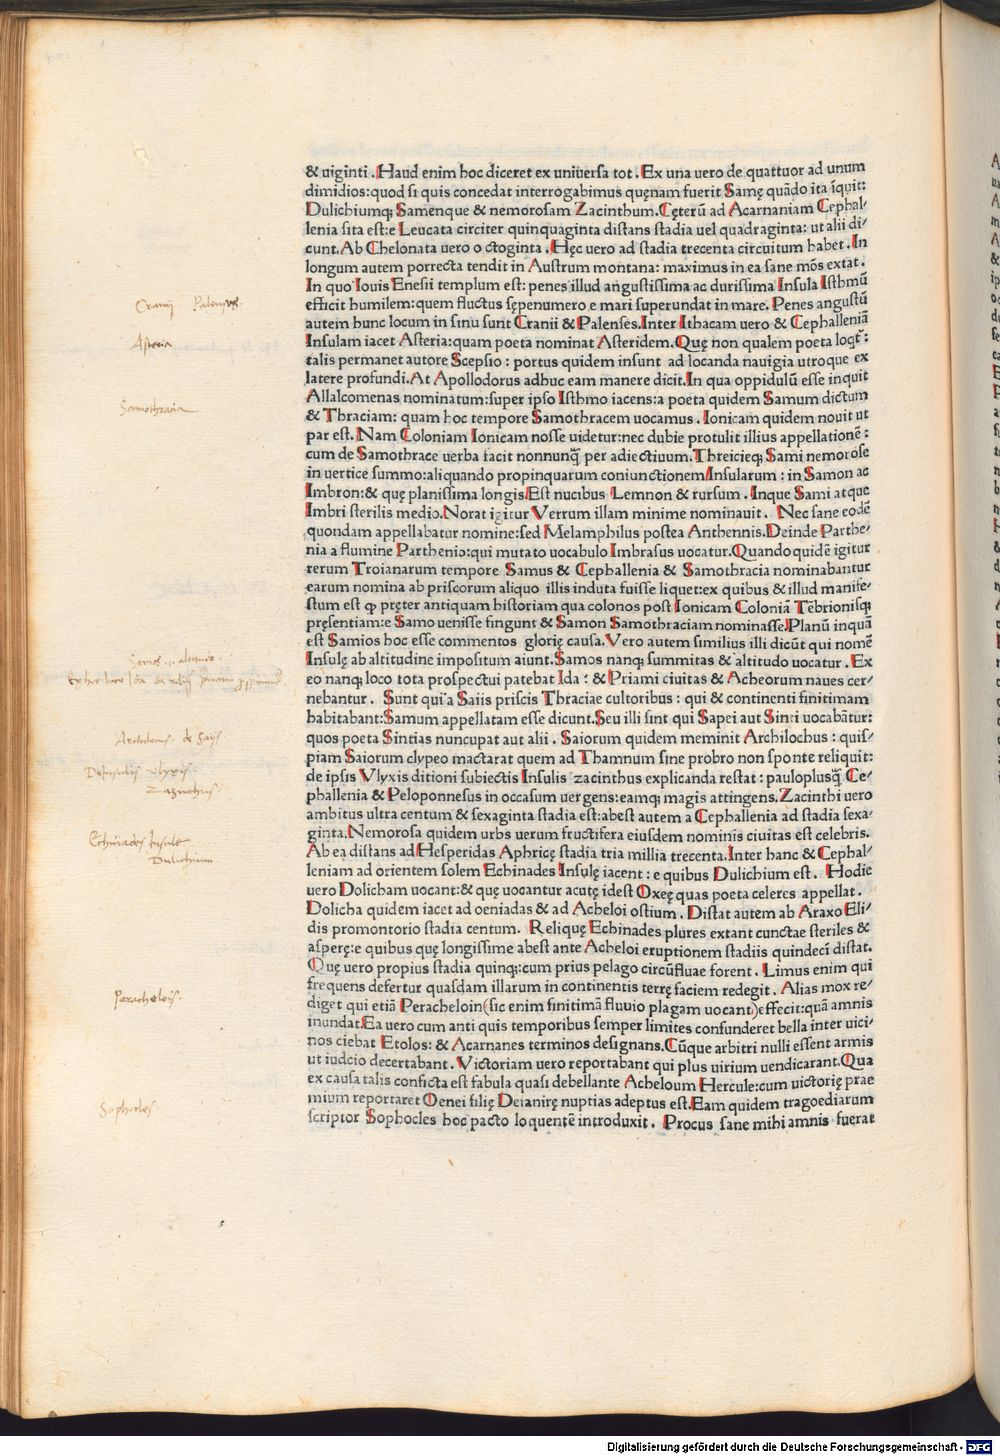 & uiginti . Haud enim hoc diceret ex uniuersa tot . Ex una uero de quattuor ad unum
dimidios: quod si quis concedat interrogabimus quęnam fuerit Samę quādo ita īquit:
Dulichiumq; Samenque & nemorosam Zacinthum. Cęterū ad Acarnaniam Cephal⸗
lenia sita est:e Leucata circiter quinquaginta distans stadia uel quadraginta: ut alii di⸗
cunt. Ab Chelonata uero octoginta . Hęc uero ad stadia trecenta circuitum habet . In
longum autem porrecta tendit in Austrum montana: maximus in ea sane mōs extat .
In quo Iouis Enesii templum est: penes illud angustissima ac durissima Insula Isthmū
efficit humilem: quem fluctus sępenumero e mari superundat in mare. Penes angustū
autem hunc locum in sinu sunt Cranii & Palenses. Inter Ithacam uero & Cephalleniā
Insulam iacet Asteria: quam poeta nominat Asteridem. Quę non qualem poeta loqt̄:
talis permanet autore Scepsio : portus quidem insunt ad locanda nauigia utroque ex
latere profundi. At Apollodorus adhuc eam manere dicit. In qua oppidulū esse inquit
Allalcomenas nominatum: super ipso Isthmo iacens: a poeta quidem Samum dictum
& Thraciam: quam hoc tempore Samothracem uocamus . Ionicam quidem nouit ut
par est. Nam Coloniam Ionicam nosse uidetur: nec dubie protulit illius appellationē:
cum de Samothrace uerba facit nonnunq̄ per adiectiuum. Threicieq; Sami nemorose
in uertice summo: aliquando propinquarum coniunctionem Insularum : in Samon ac
Imbron: & quę planissima longis. Est nucibus Lemnon & rursum . Inque Sami atque
Imbri sterilis medio. Norat igitur Verrum illam minime nominauit . Nec sane eodē
quondam appellabatur nomine: sed Melamphilus postea Anthennis. Deinde Parthe⸗
nia a flumine Parthenio: qui mutato uocabulo Imbrasus uocatur. Quando quidē igitur
rerum Troianarum tempore Samus & Cephallenia & Samothracia nominabantur
earum nomina ab priscorum aliquo illis induta fuisse liquet: ex quibus & illud manife⸗
stum est ꝙ pręter antiquam historiam qua colonos post Ionicam Coloniā Tebrionisq;
pręsentiam: e Samo uenisse fingunt & Samon Samothraciam nominasse. Planū inquā
est Samios hoc esse commentos glorię causa. Vero autem similius illi dicūt qui nomē
Insulę ab altitudine impositum aiunt. Samos nanq; summitas & altitudo uocatur . Ex
eo nanq; loco tota prospectui patebat Ida : & Priami ciuitas & Acheorum naues cer⸗
nebantur . Sunt qui a Saiis priscis Thraciae cultoribus : qui & continenti finitimam
habitabant: Samum appellatam esse dicunt. Seu illi sint qui Sapei aut Sinti uocabātur:
quos poeta Sintias nuncupat aut alii . Saiorum quidem meminit Archilochus : quis⸗
piam Saiorum clypeo mactarat quem ad Thamnum sine probro non sponte reliquit:
de ipsis Vlyxis ditioni subiectis Insulis zacinthus explicanda restat : pauloplusq̄ Ce⸗
phallenia & Peloponnesus in occasum uergens: eamq; magis attingens. Zacinthi uero
ambitus ultra centum & sexaginta stadia est: abest autem a Cephallenia ad stadia sexa⸗
ginta. Nemorosa quidem urbs uerum fructifera eiusdem nominis ciuitas est celebris.
Ab ea distans ad Hesperidas Aphricę stadia tria millia trecenta. Inter hanc & Cephal⸗
leniam ad orientem solem Echinades Insulę iacent : e quibus Dulichium est . Hodie
uero Dolicham uocant: & quę uocantur acutę idest Oxeę quas poeta celeres appellat .
Dolicha quidem iacet ad oeniadas & ad Acheloi ostium . Distat autem ab Araxo Eli⸗
dis promontorio stadia centum . Reliquę Echinades plures extant cunctae steriles &
asperę: e quibus quę longissime abest ante Acheloi eruptionem stadiis quindeci distat.
Quę uero propius stadia quinq;: cum prius pelago circūfluae forent . Limus enim qui
frequens defertur quasdam illarum in continentis terrę faciem redegit . Alias mox re⸗
diget qui etiā Peracheloin (sic enim finitimā fluuio plagam uocant) effecit: quā amnis
inundat. Ea uero cum antiquis temporibus semper limites confunderet bella inter uici⸗
nos ciebat Etolos: & Acarnanes terminos designans. Cūque arbitri nulli essent armis
ut iudcio decertabant . Victoriam uero reportabant qui plus uirium uendicarant. Qua
ex causa talis conficta est fabula quasi debellante Acheloum Hercule: cum uictorię prae
mium reportaret Oenei filię Deianirę nuptias adeptus est. Eam quidem tragoediarum
scriptor Sophocles hoc pacto loquentē introduxit . Procus sane mihi amnis fuerat
Cranij Palenses.
Asteria
Samothracia
Samos .i. altitudo.
Ex hoc loco Ida
de Sajs.
De insulis Vlyxis.
Zazinthus.
Echinades Insule
Dulichium
Perachelois.
Sophocles
Digitalisierung gefördert durch die Deutsche Forschungsgemeinschaft - DFG